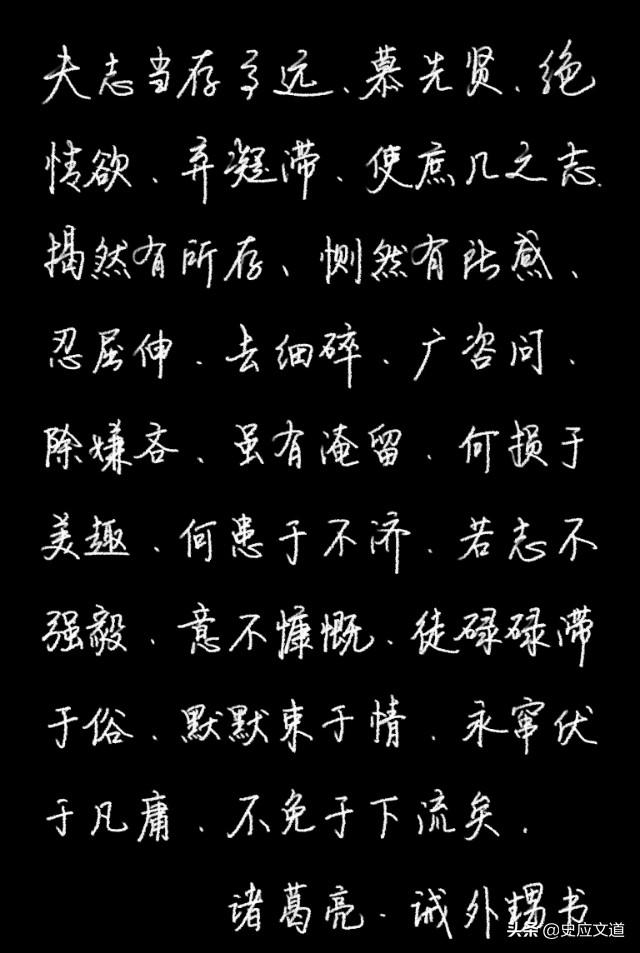 夫志当存高远、慕先贤、绝
情欲、弃凝滞、使庶几之志.
揭然有所存、恻然有所感、
忍屈伸、去细碎、广咨问、
除嫌吝、虽有淹留、何损于
美趣、何患于不济、若志不
强毅、意不慷慨、徒碌碌滞
于俗、默默束于情、永窜伏
于凡庸、不免于下流矣.
诸葛亮.诫外甥书
头条@史应文道